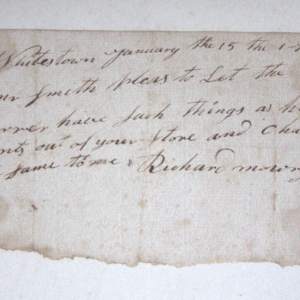 Whitestown January the 15 the 1
Smith pleas to Let the
have such things as h
out of your Store and Cha
Same to me Richard mowr